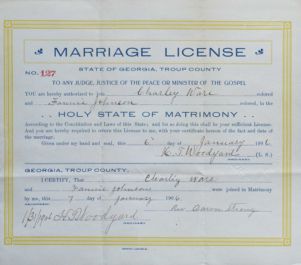 MARRIAGE LICENSE
STATE OF GEORGIA, TROUP COUNTY
NO. 127
TO ANY JUDGE, JUSTICE OF THE PEACE OR MINISTER OF THE GOSPEL
YOU are hereby authorized to join Charley Ware colored
and Fannie Johnson colored, in the
. . HOLY STATE OF MATRIMONY . .
According to the Constitution and Laws of this State; and for so doing this shall be your sufficient License.
And you are hereby required to return this License to me, with your certificate hereon of the fact and date
of the marriage.
Given under my hand and seal, this 6 day of January 1906
H. T. Woodyard (L. S.)
GEORGIA, TROUP COUNTY.
I CERTIFY, That Charley Ware
and Fannie Johnson were joined in Matrimony
by me, this 7 day of January 1906
H. T. Woodyard Rev. Aaron